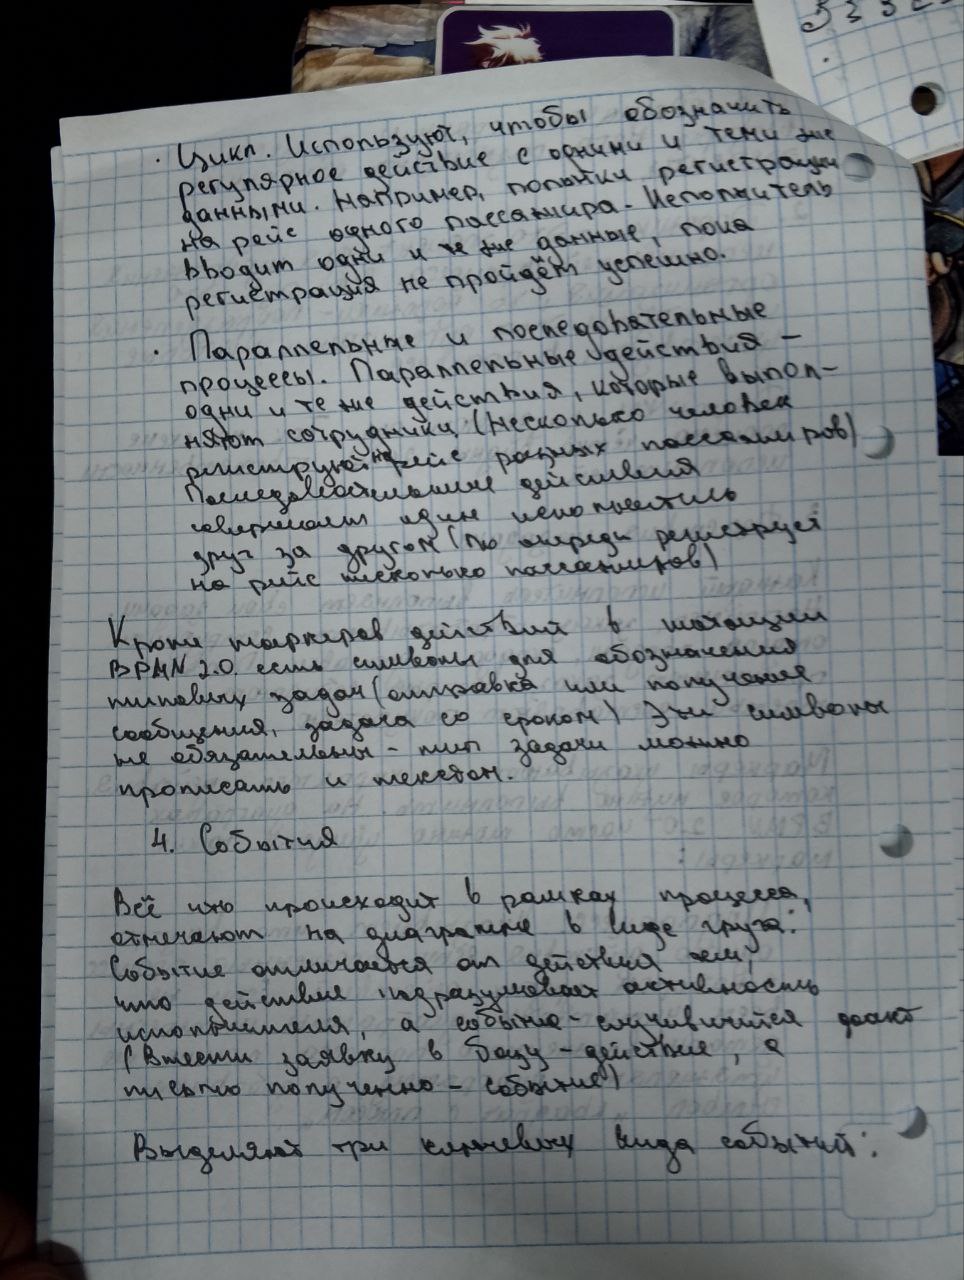 · Цикл. Используют, чтобы обозначить
регулярное действие с одними и теми же
данными. Например, попытки регистрации
на рейс одного пассажира. Исполнитель
вводит одни и те же данные, пока
регистрация не пройдёт успешно.
· Параллельные и последовательные
процессы. Параллельные действия –
одни и те же действия, которые выпол-
няют сотрудники (несколько человек
регистрируют на рейс разных пассажиров)
Последовательные действия
совершает один исполнитель
друг за другом (по очереди регистрирует
на рейс несколько пассажиров)
Кроме маркеров действий в нотации
BPMN 2.0. есть символы для обозначения
типовых задач (отправка или получения
сообщения, задача со сроком) Эти символы
не обязательны - тип задачи можно
прописать и текстом.
4. События
Всё что происходит в рамках процесса,
отмечают на диаграмме в виде круга.
Событие отличается от действия тем,
что действие подразумевает активность
исполнителя, а событие - случившийся факт
(Внести заявку в базу - действие, а
письмо полученно - событие)
Выделяют три ключевых вида событий: